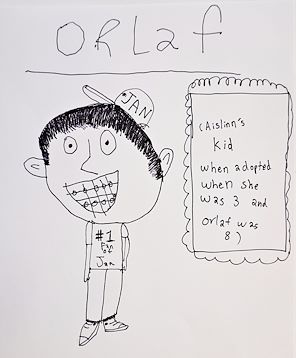 ORLaf
JAN
(Aislinn's
kid
when adopted
when she
was 3 and
orlaf was
8)
#1
Fan
of
Jan